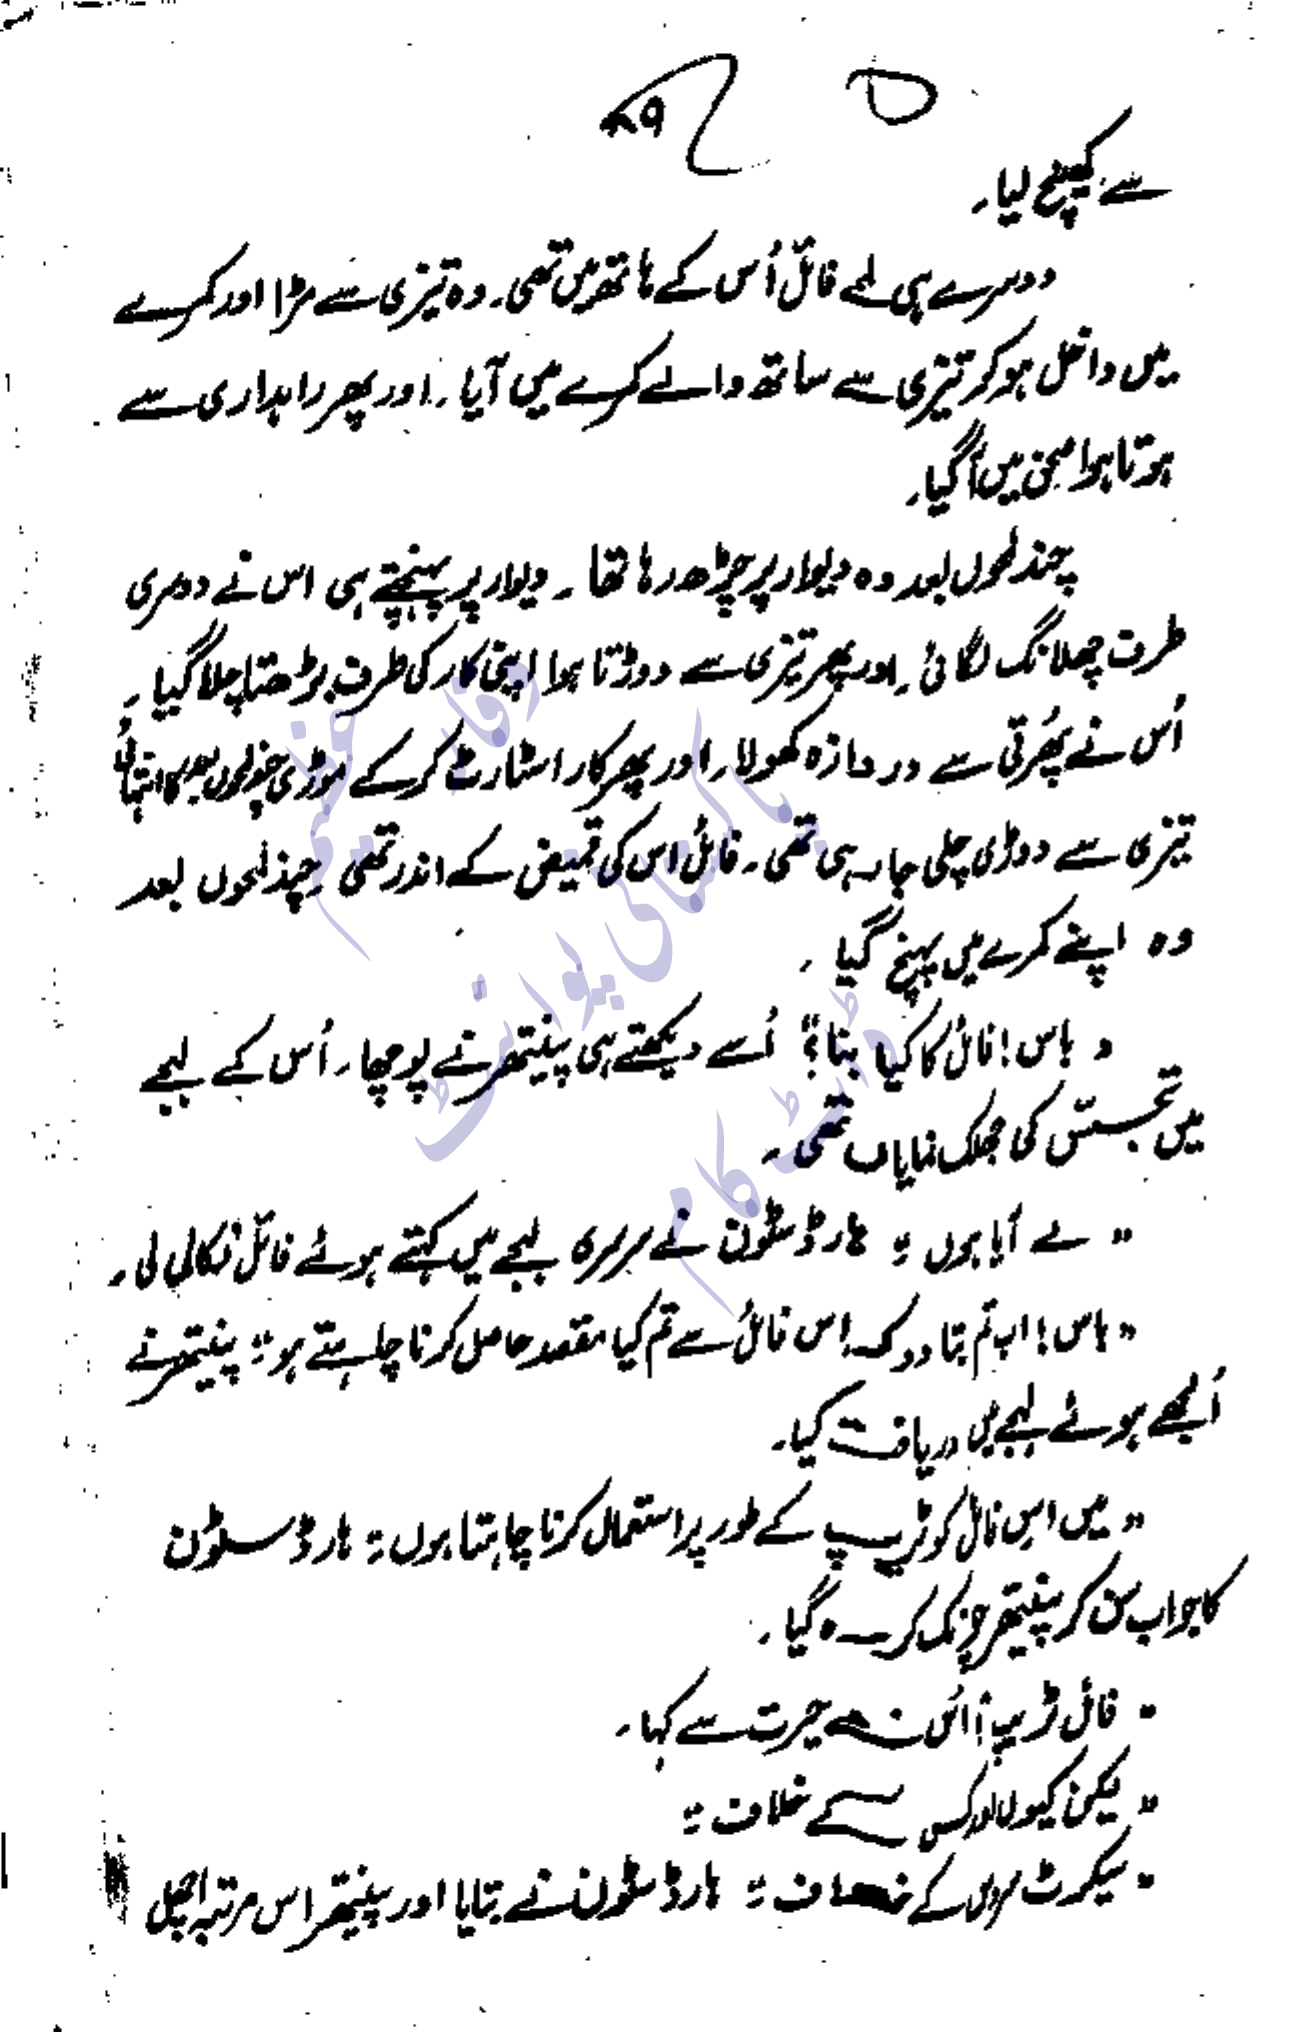 ۸۹
سے کھینچ لیا۔
دوسرے ہی لمحے فائل اُس کے ہاتھ میں تھی۔ وہ تیزی سے مڑا اور کمرے
میں داخل ہو کر تیزی سے ساتھ والے کمرے میں آیا۔ اور پھر راہداری سے
ہوتا ہوا صحن میں آگیا۔
چند لمحوں بعد وہ دیوار پر چڑھ رہا تھا۔ دیوار پر پہنچتے ہی اس نے دوسری
طرف چھلانگ لگائی۔ اور پھر تیزی سے دوڑتا ہوا اپنی کار کی طرف بڑھتا چلا گیا۔
اُس نے پھُرتی سے دروازہ کھولا۔ اور پھر کار اسٹارٹ کر کے موڑ دی چند لمحوں بعد کار انتہائی
تیزی سے دوڑی چلی جا رہی تھی۔ فائل اس کی قمیض کے اندر تھی۔ چند لمحوں بعد
وہ اپنے کمرے میں پہنچ گیا۔
" باس! فائل کا کیا بنا؟" اُسے دیکھتے ہی پینتھر نے پوچھا۔ اُس کے لہجے
میں تجسّس کی جھلک نمایاں تھی۔
" لے آیا ہوں " ہارڈ سٹون نے سرسری لہجے میں کہتے ہوئے فائل نکال لی۔
" باس! اب تم بتا دو کہ اس فائل سے تم کیا مقصد حاصل کرنا چاہتے ہو " پینتھر نے
اُلجھے ہوئے لہجے میں دریافت کیا۔
" میں اس فائل کو ٹریپ کے طور پر استعمال کرنا چاہتا ہوں " ہارڈ سٹون
کا جواب سن کر پینتھر چونک کر رہ گیا۔
" فائل ٹریپ! اُس نے حیرت سے کہا۔
" لیکن کیوں اور کس کے خلاف "
" سیکرٹ سروس کے خلاف " ہارڈ سٹون نے بتایا اور پینتھر اس مرتبہ اچھل
عظیم وقار
پاکستانی پوائنٹ
ڈاٹ کام